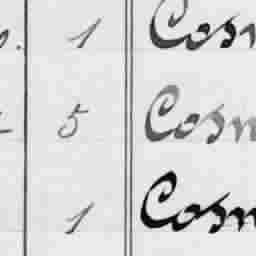 1 Cosm
5 Cosm
1 Cosm